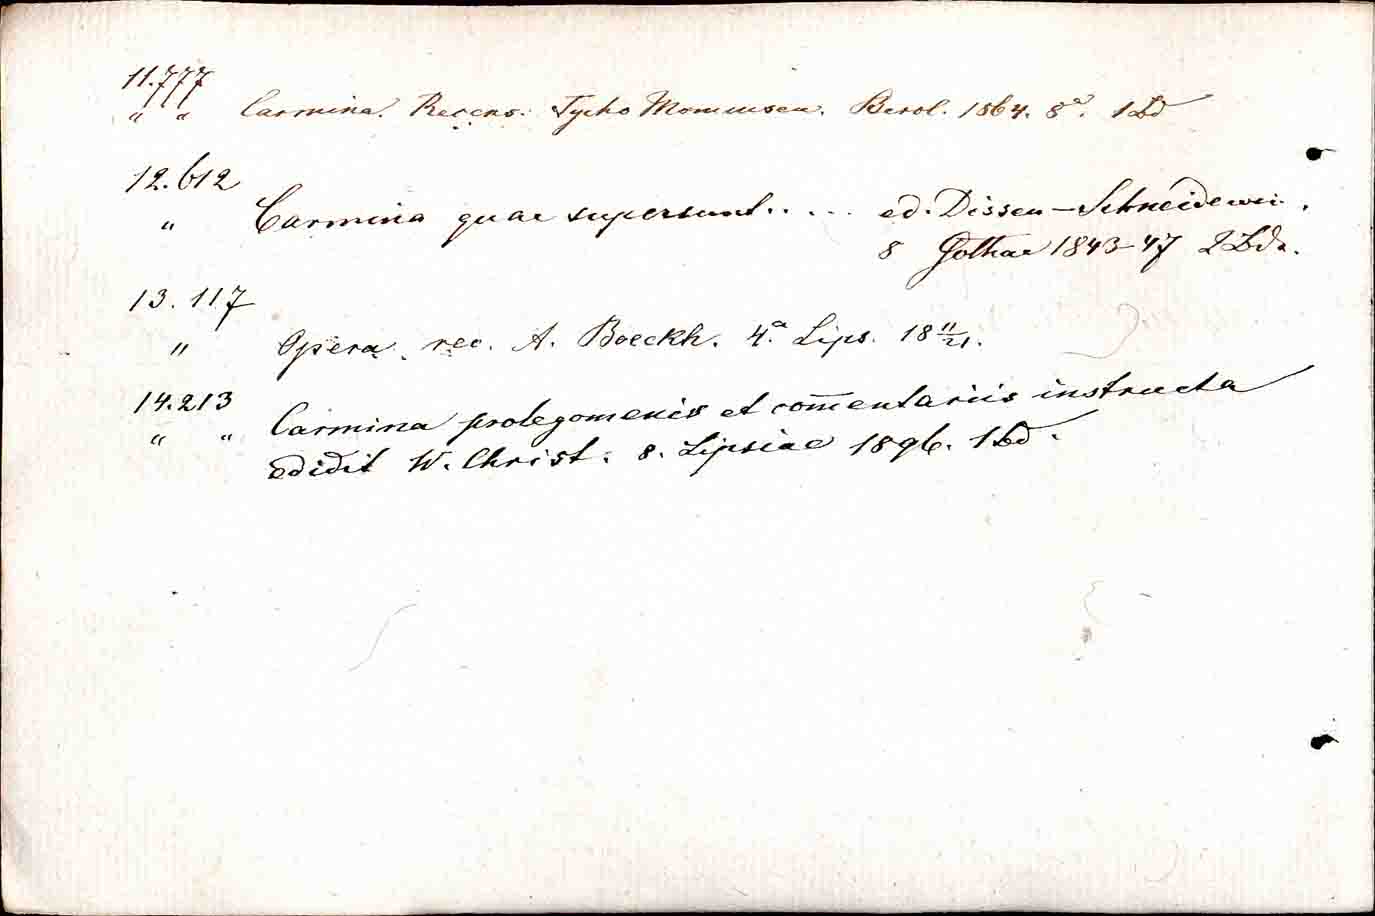 11.777
" " Carmina. Recens. Tycho Mommsen. Berol. 1864. 8°. 1 Bd
12.612
" Carmina quae supersunt..... ed. Dissen-Schneidewin.
8 Gothae 1843-47 2 Bde.
13.117
" Opera rec. A. Boeckh. 4.° Lips. 18 11/21.
14.213
" " Carmina prolegomenis et com̅entariis instructa
edidit W. Christ. 8. Lipsiae 1896. 1 Bd.